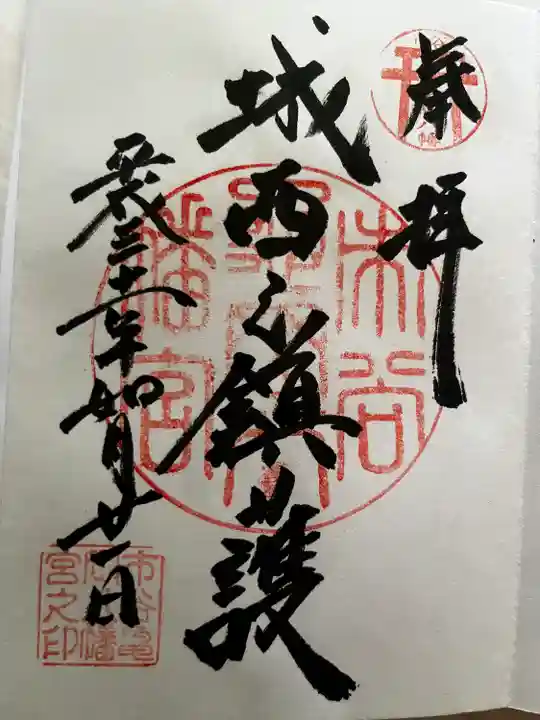 奉拝
城西之鎮護
平成三十一年如月廿一日
市谷亀岡八幡宮
市谷亀岡八幡宮之印